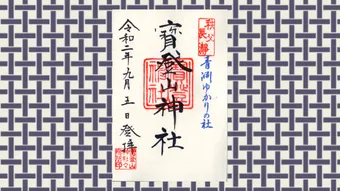 秩父
長瀞
青淵ゆかりの社
寳登山神社
令和二年九月五日登拝